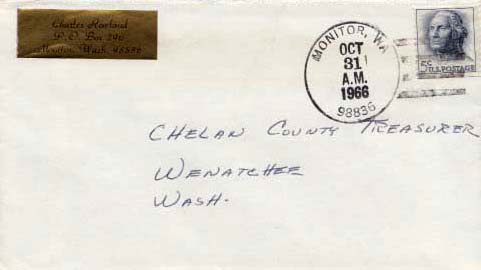 Charles Rowland
P.O. Box 296
Monitor, Wash. 98836
MONITOR, WA
OCT
31
A.M.
1966
98836
5¢
U.S. POSTAGE
CHELAN COUNTY TREASURER
WENATCHEE
WASH.